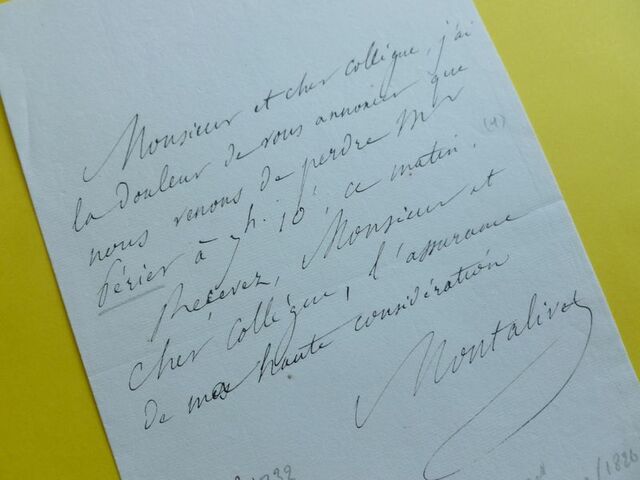 Monsieur et cher Collègue, j'ai
la douleur de vous annoncer que
nous venons de perdre Mr
Périer à 7h. 10', ce matin. (1)
Recevez, Monsieur et
cher Collègue, l'assurance
de ma haute considération
Montalivet
1832
/1826